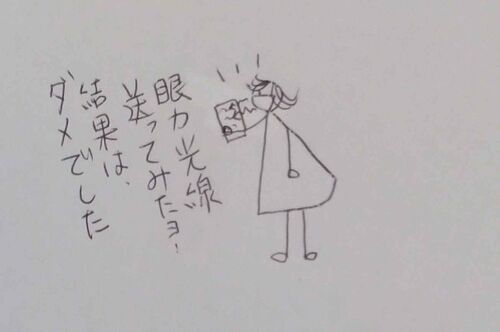 眼力光線
送ってみたヨ!
結果は、
ダメでした